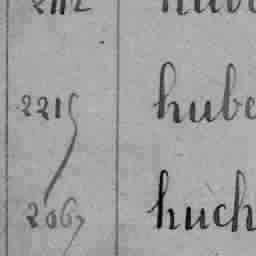 2215 hube
2067 huch